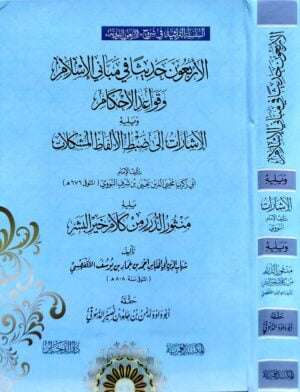 السلسلة التراثية في شروح الأربعين النووية
الأربعون حديثا في مباني الإسلام
وقواعد الأحكام
ويليه
الإشارات إلى ضبط الألفاظ المشكلات
تأليف الإمام
أبي زكريا محيي الدين يحيى بن شرف النووي (المتوفى ٦٧٦هـ)
يليه
منثور الدرر من كلام خير البشر
تأليف
شهاب الدين أبي العباس أحمد بن عماد بن يوسف الأقفهسي
(المتوفى سنة ٨٠٨هـ)
حققه
الأربعون حديثا في مباني الإسلام
ويليه
الإشارات
النووي
ويليه
منثور الدرر
حققه